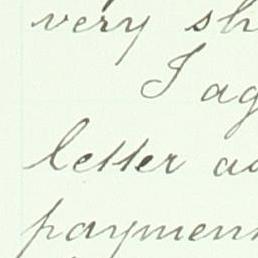 very sh
I ag
letter ad
payment